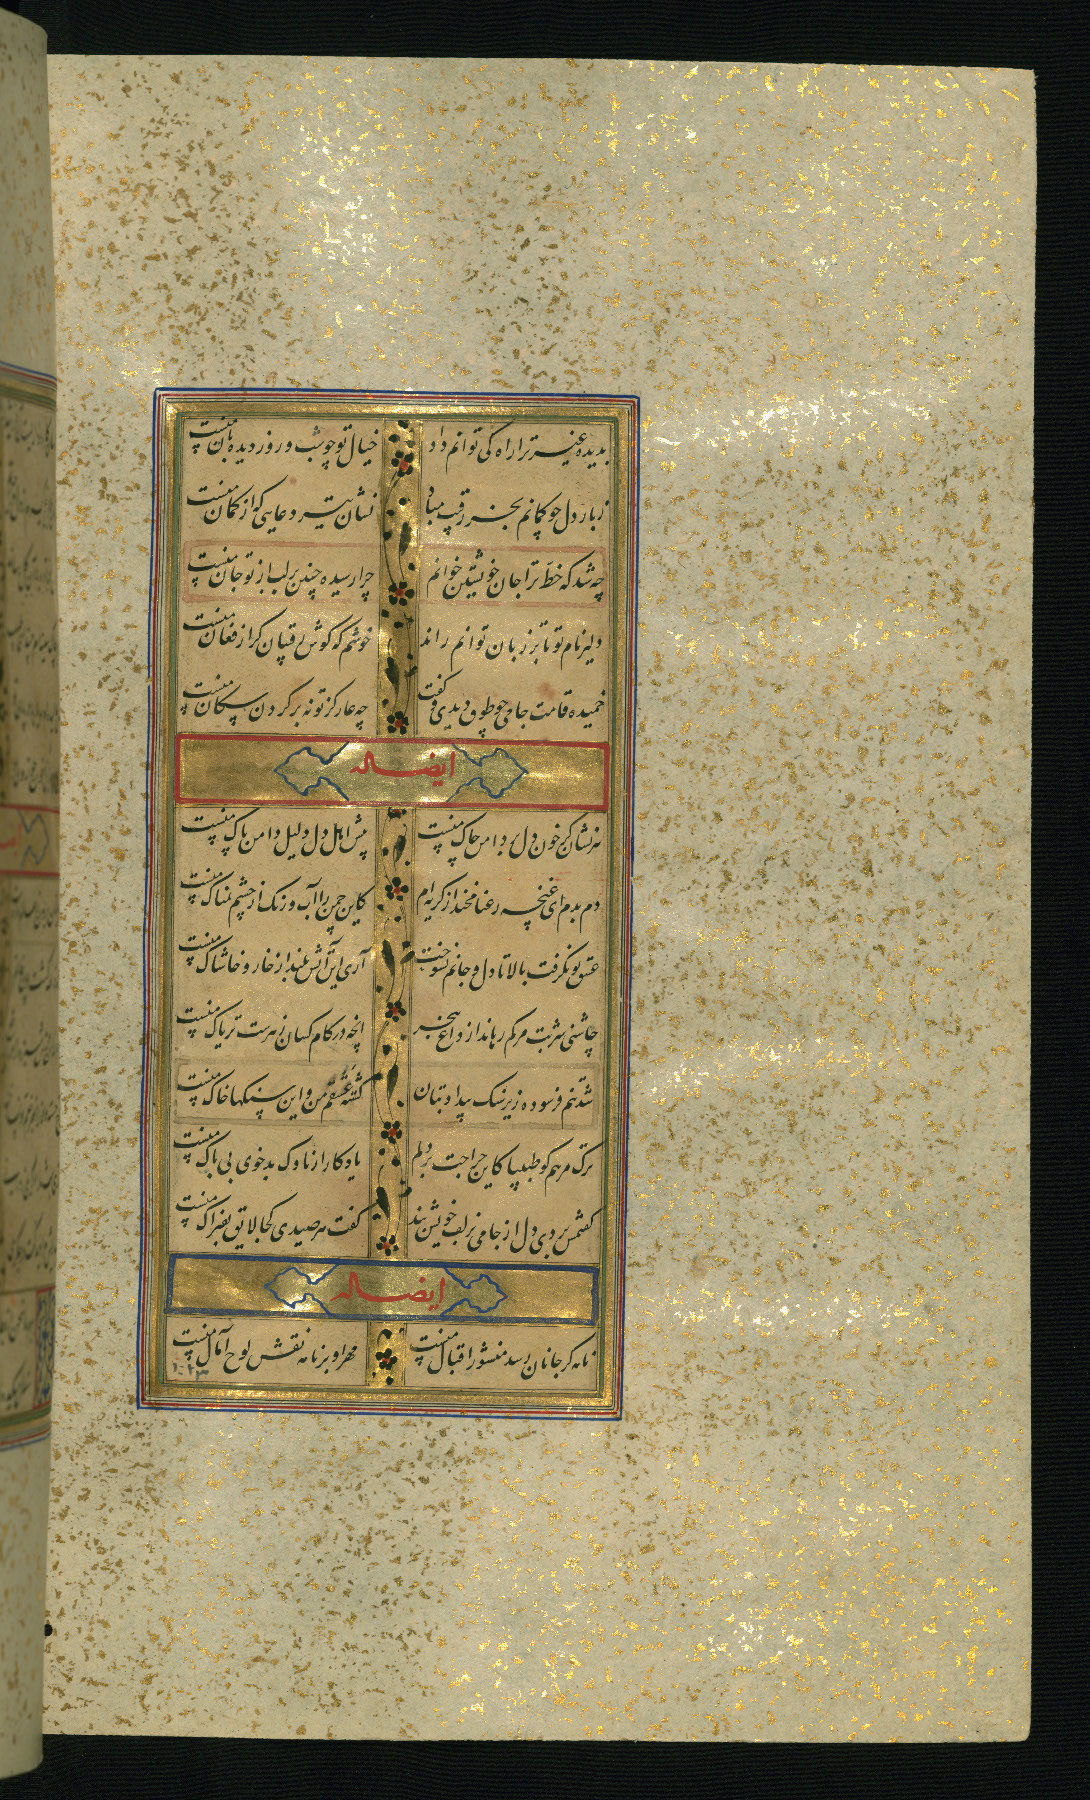 بدیده غیر ترا راه کی توانم داد خیال تو چو شب و روز دیده بان منست
ز بار دل چو کمانم بجز رقیب مباد نشان تیر دعایی که از کمان منست
چه شد که خط ترا جان خویشتن خوانم چرا رسیده چنین بر لب از تو جان منست
دلیر نام تو تا بر زبان توانم راند خوشم که گوش رقیبان کر از فغان منست
خمیده قامت جامی چو طوق دیدی و گفت چه عار کز تو نه بر گردن سگان منست
ایضا له
هر نشان کز خون دل بر دامن چاک منست پیش اهل دل دلیل دامن پاک منست
دم بدم ای غنچه رعنا مخند از گریه ام کاین چمن را آب و رنک از چشم نمناک منست
عشق تو بگرفت بالا تا دل و جانم بسوخت آری این آتش بلند از خار و خاشاک منست
چاشنی شربت مرکم رهاند از داغ هجر انچه در کام کسان زهرست تریاک منست
شد تنم فرسوده زیر سنک بیداد بتان کشته عشقم من و این سنکها خاک منست
ترک مرهم کو طبیبا کاین جراحت بر دلم یادکار از ناوک بدخوی بی باک منست
کفتمش بردی دل از جامی بزلف خویش بند کفت هر صیدی کجا لایق بفتراک منست
ایضا له
نامه کز جانان رسد منشور اقبال منست مهر او بر نامه نقش لوح آمال منست